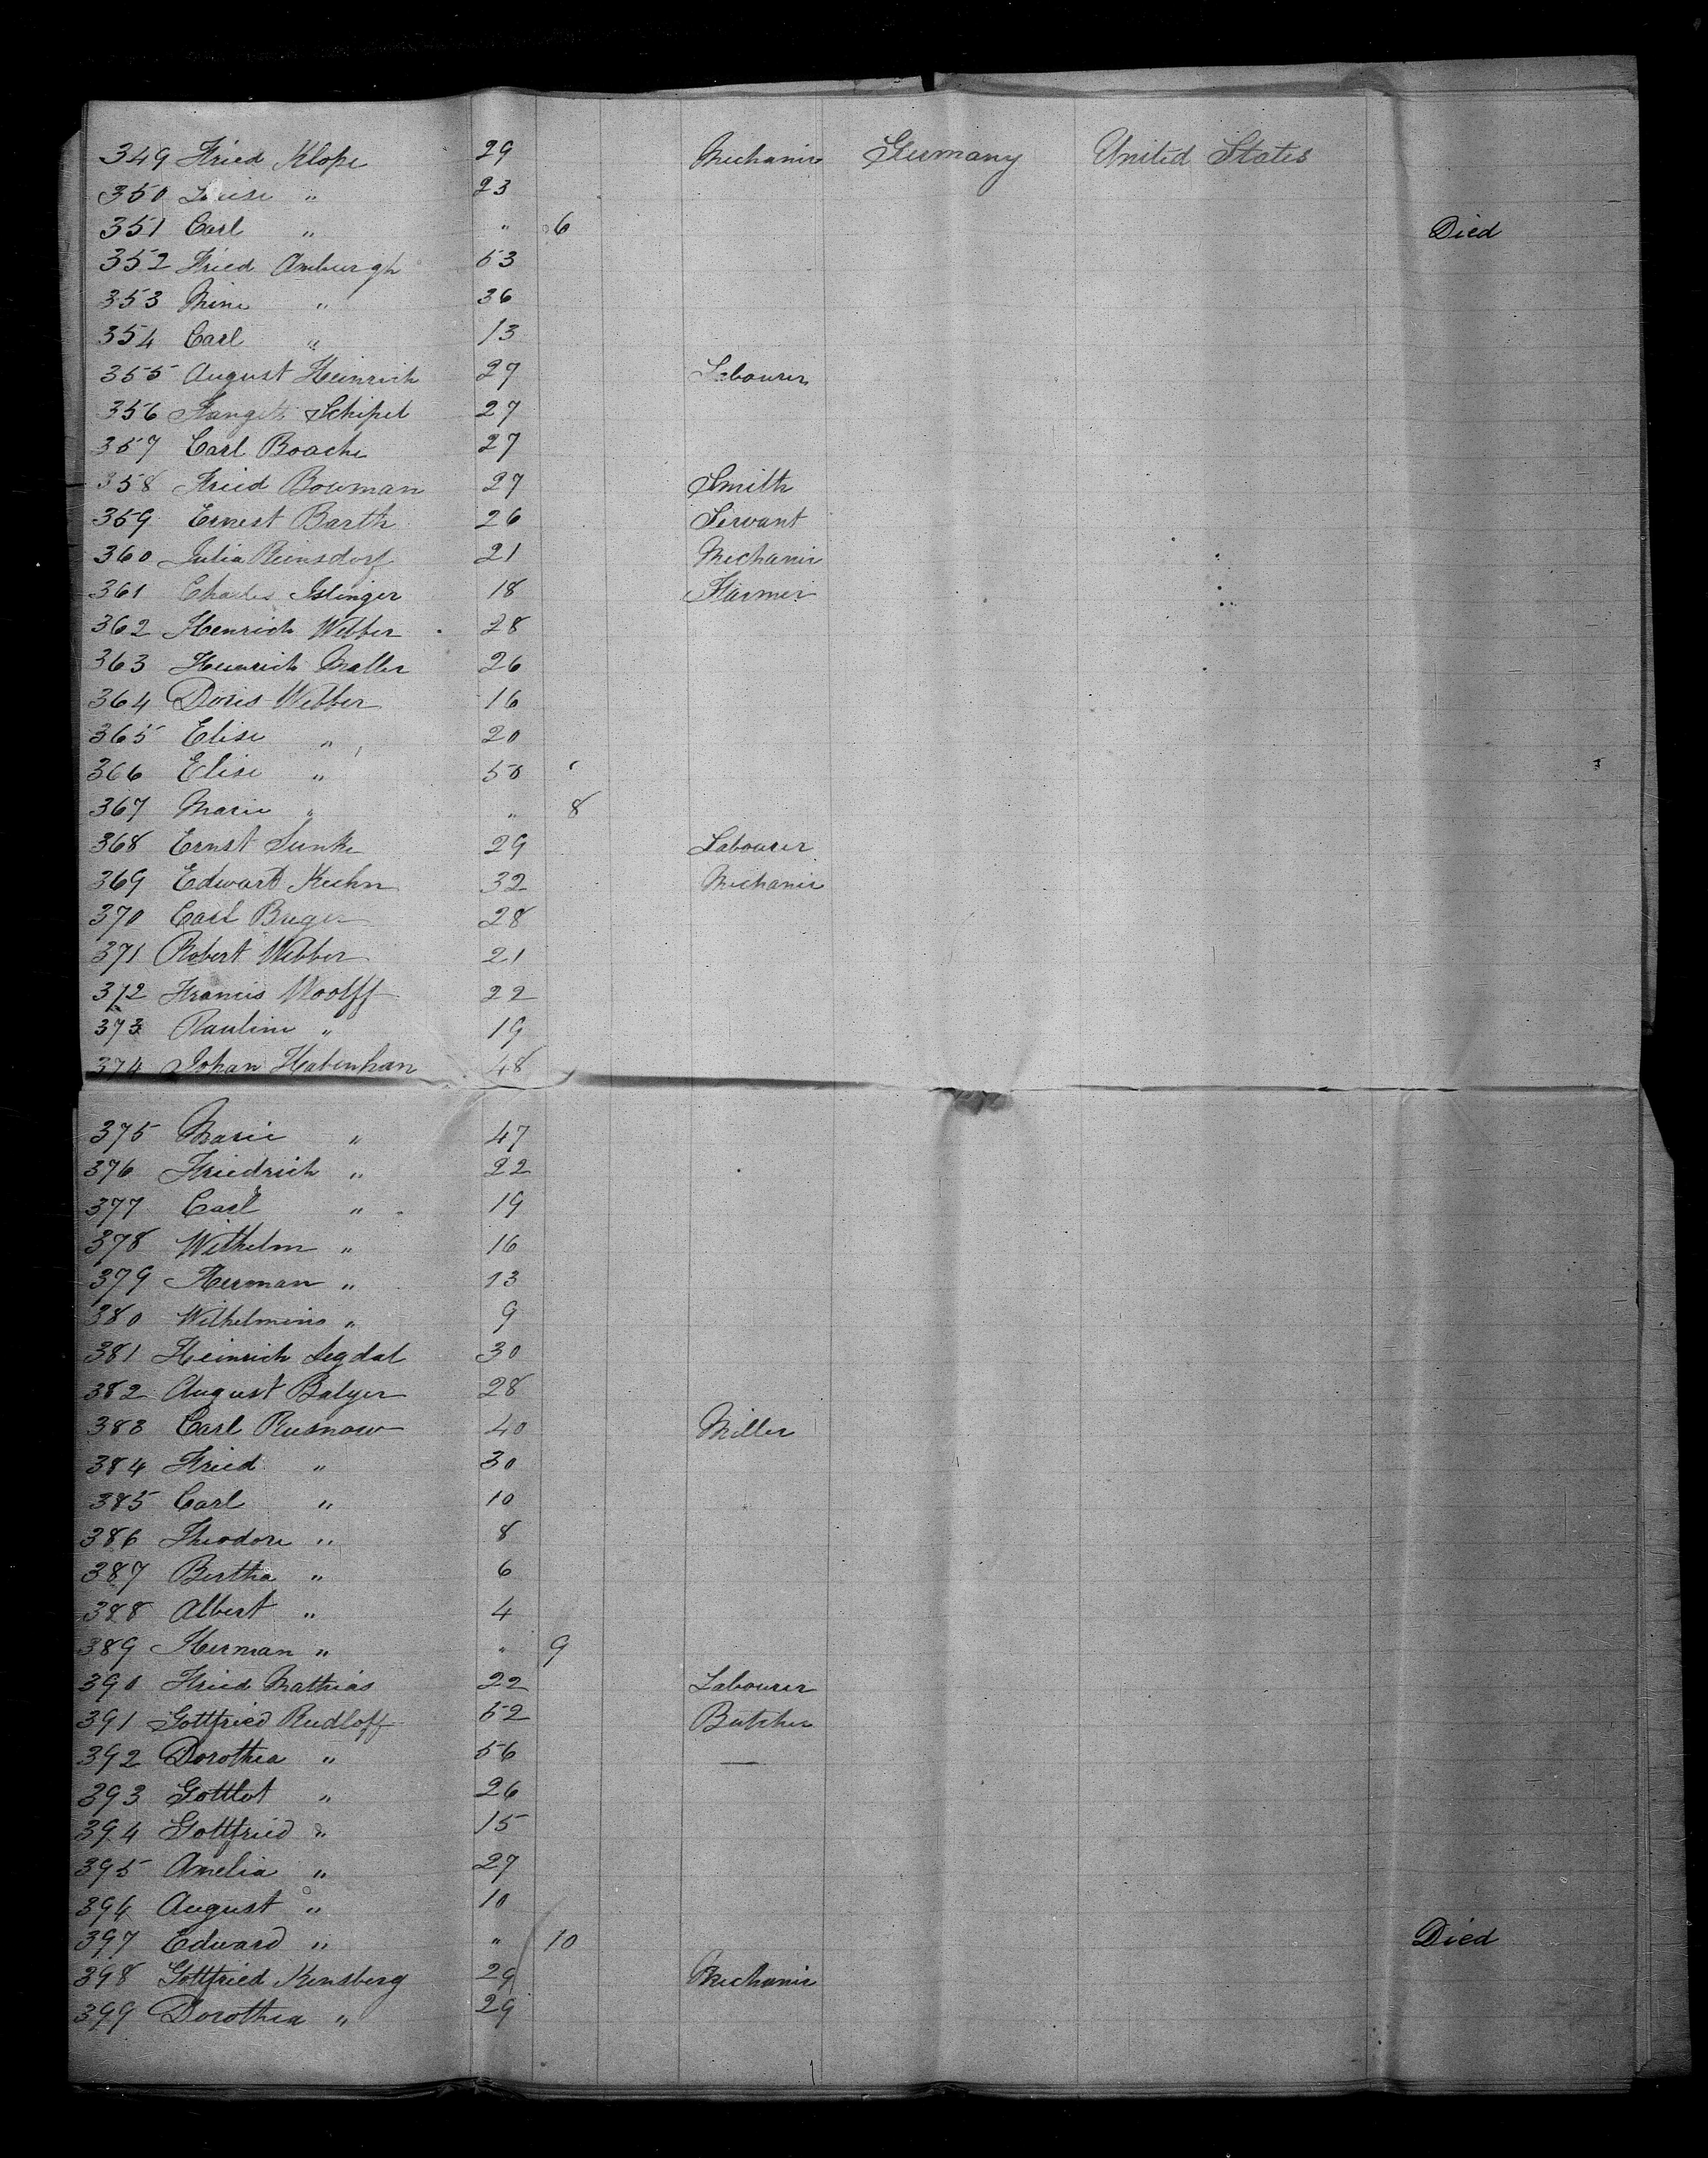 349 Fried Klope 29 Mechanic Germany United States
350 Louise " 23
351 Carl " " 6 Died
352 Fried Amburgh 53
353 Mine " 36
354 Carl " 13
355 August Heinrich 27 Labourer
356 Schipel 27
357 Carl Boache 27
358 Fried Bowman 27 Smith
359 Ernest Barth 26 Servant
360 Julia Reinsdorf 21 Mechanic
361 Charles Islinger 18 Farmer
362 Henrich Webber 28
363 Heinrich Maller 26
364 Doris Webber 16
365 Elise " 20
366 Elise " 50
367 Marie " " 8
368 Ernst Sunke 29 Labourer
369 Edwart Kuhn 32 Mechanic
370 Carl Breger 28
371 Robert Webber 21
372 Francis Woolff 22
373 Pauline " 19
374 Johan Habenhan 48
375 Marie " 47
376 Friedrich " 22
377 Carl " 19
378 Wilhelm " 16
379 Herman " 13
380 Wilhelmine " 9
381 Heinrich Legdal 30
382 August Balyer 28
383 Carl Rusnow 40 Miller
384 Fried " 30
385 Carl " 10
386 Theodore " 8
387 Bertha " 6
388 Albert " 4
389 Herman " " 9
390 Fried Mathias 22 Labourer
391 Gottfried Rudloff 52 Butcher
392 Dorothea " 56 —
393 Gottlob " 26
394 Gottfried " 15
395 Amelia " 27
396 August " 10
397 Edward " " 10 Died
398 Gottfried Kensberg 29 Mechanic
399 Dorothea " 29